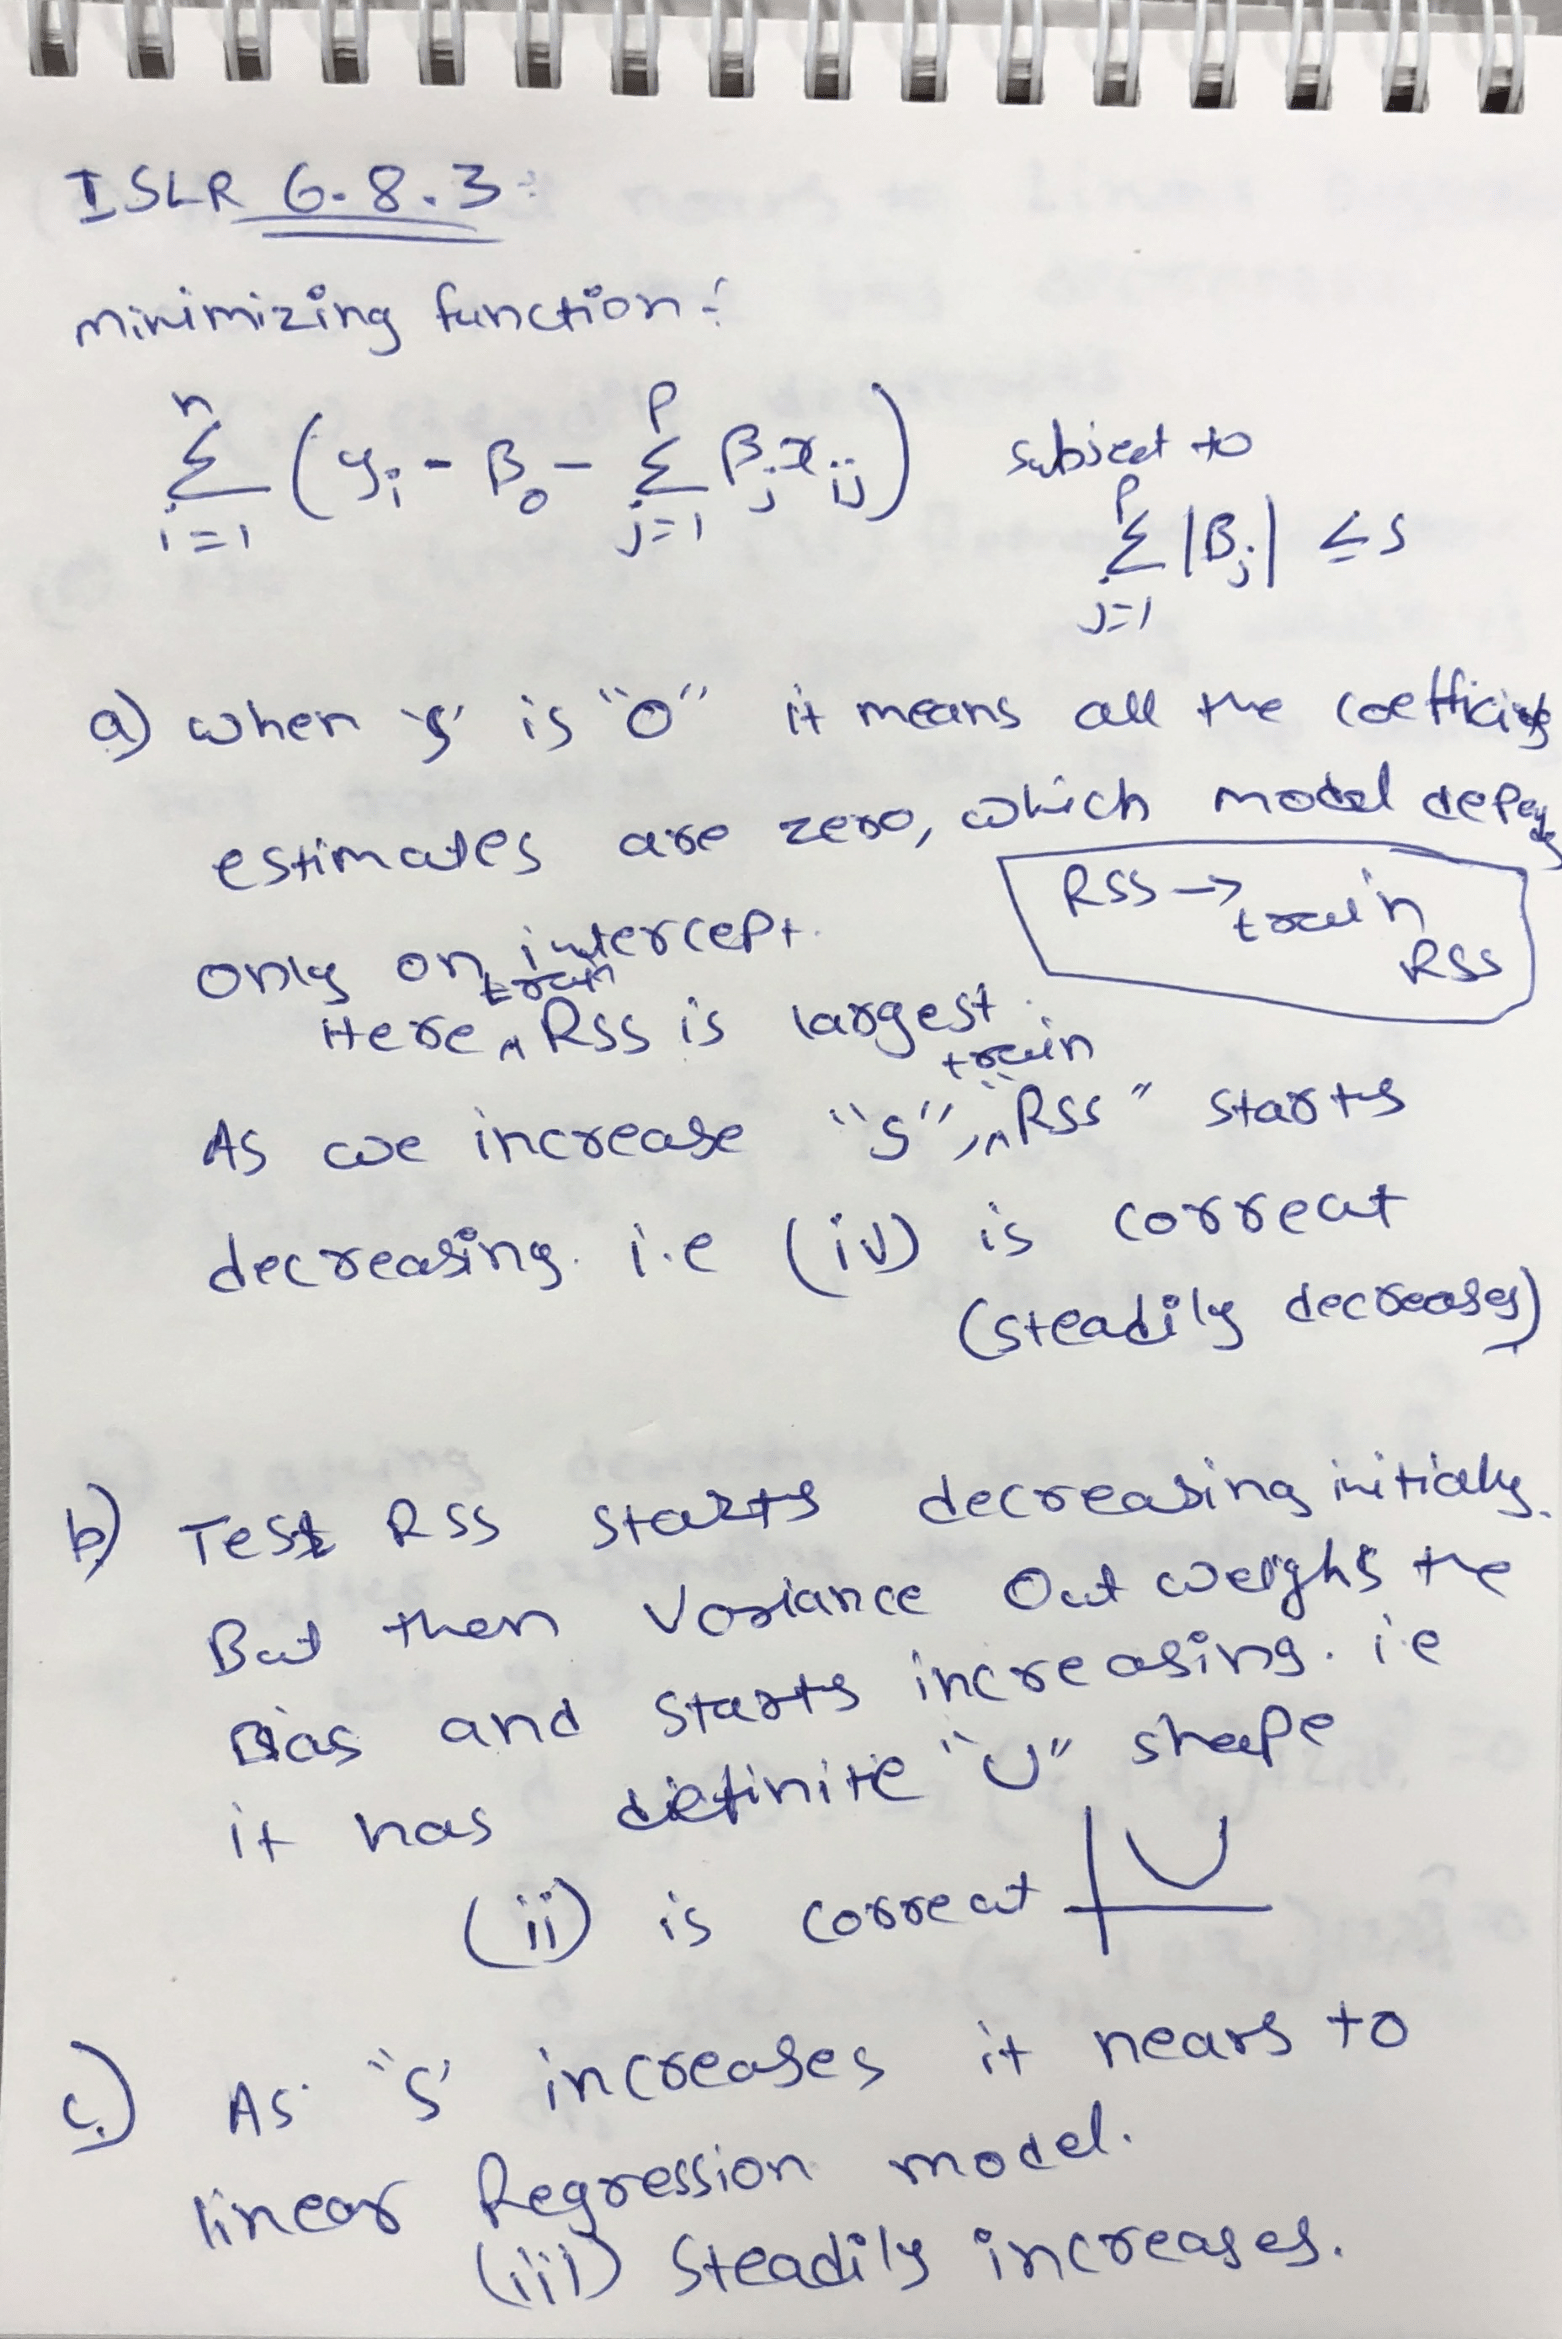 ISLR 6.8.3:
minimizing function:
n Σ i=1 (yi - β0 - p Σ j=1 βj xij) subject to
p Σ j=1 |βj| ≤ s
a) when 's' is "0" it means all the coefficients
estimates are zero, which model depends
only on intercept.
RSS → train
RSS
Here train RSS is largest.
As we increase "s", train "RSS" starts
decreasing. i.e (iv) is correct
(steadily decreases)
b) Test RSS starts decreasing initialy.
But then Variance Out weighs the
Bias and starts increasing. i.e
it has definite "U" shape
(ii) is correct
c.) As "s' increases it nears to
linear Regression model.
(iii) Steadily increases.